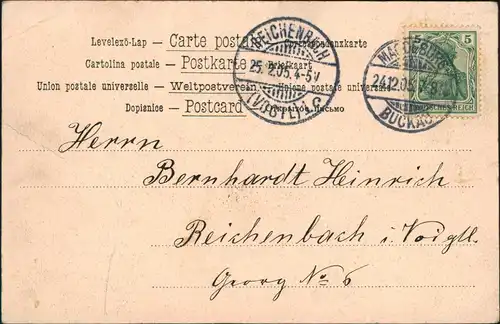 Levelező-Lap — Carte posta
denzkarte
Cartolina postale — Postkarte
Briefkaart
Union postale universelle — Weltpostverein — Unione postale universale
Dopisnice — Postcard
письмо
REICHENBACH
25.12.05.4-5N
(VOGTL.) 1. C.
MAGDEBURG
24.12.05.
BUCKAU
5
DEUTSCHES REICH
Herrn
Bernhardt Heinrich
Reichenbach i. Voigtl.
Georg No 6